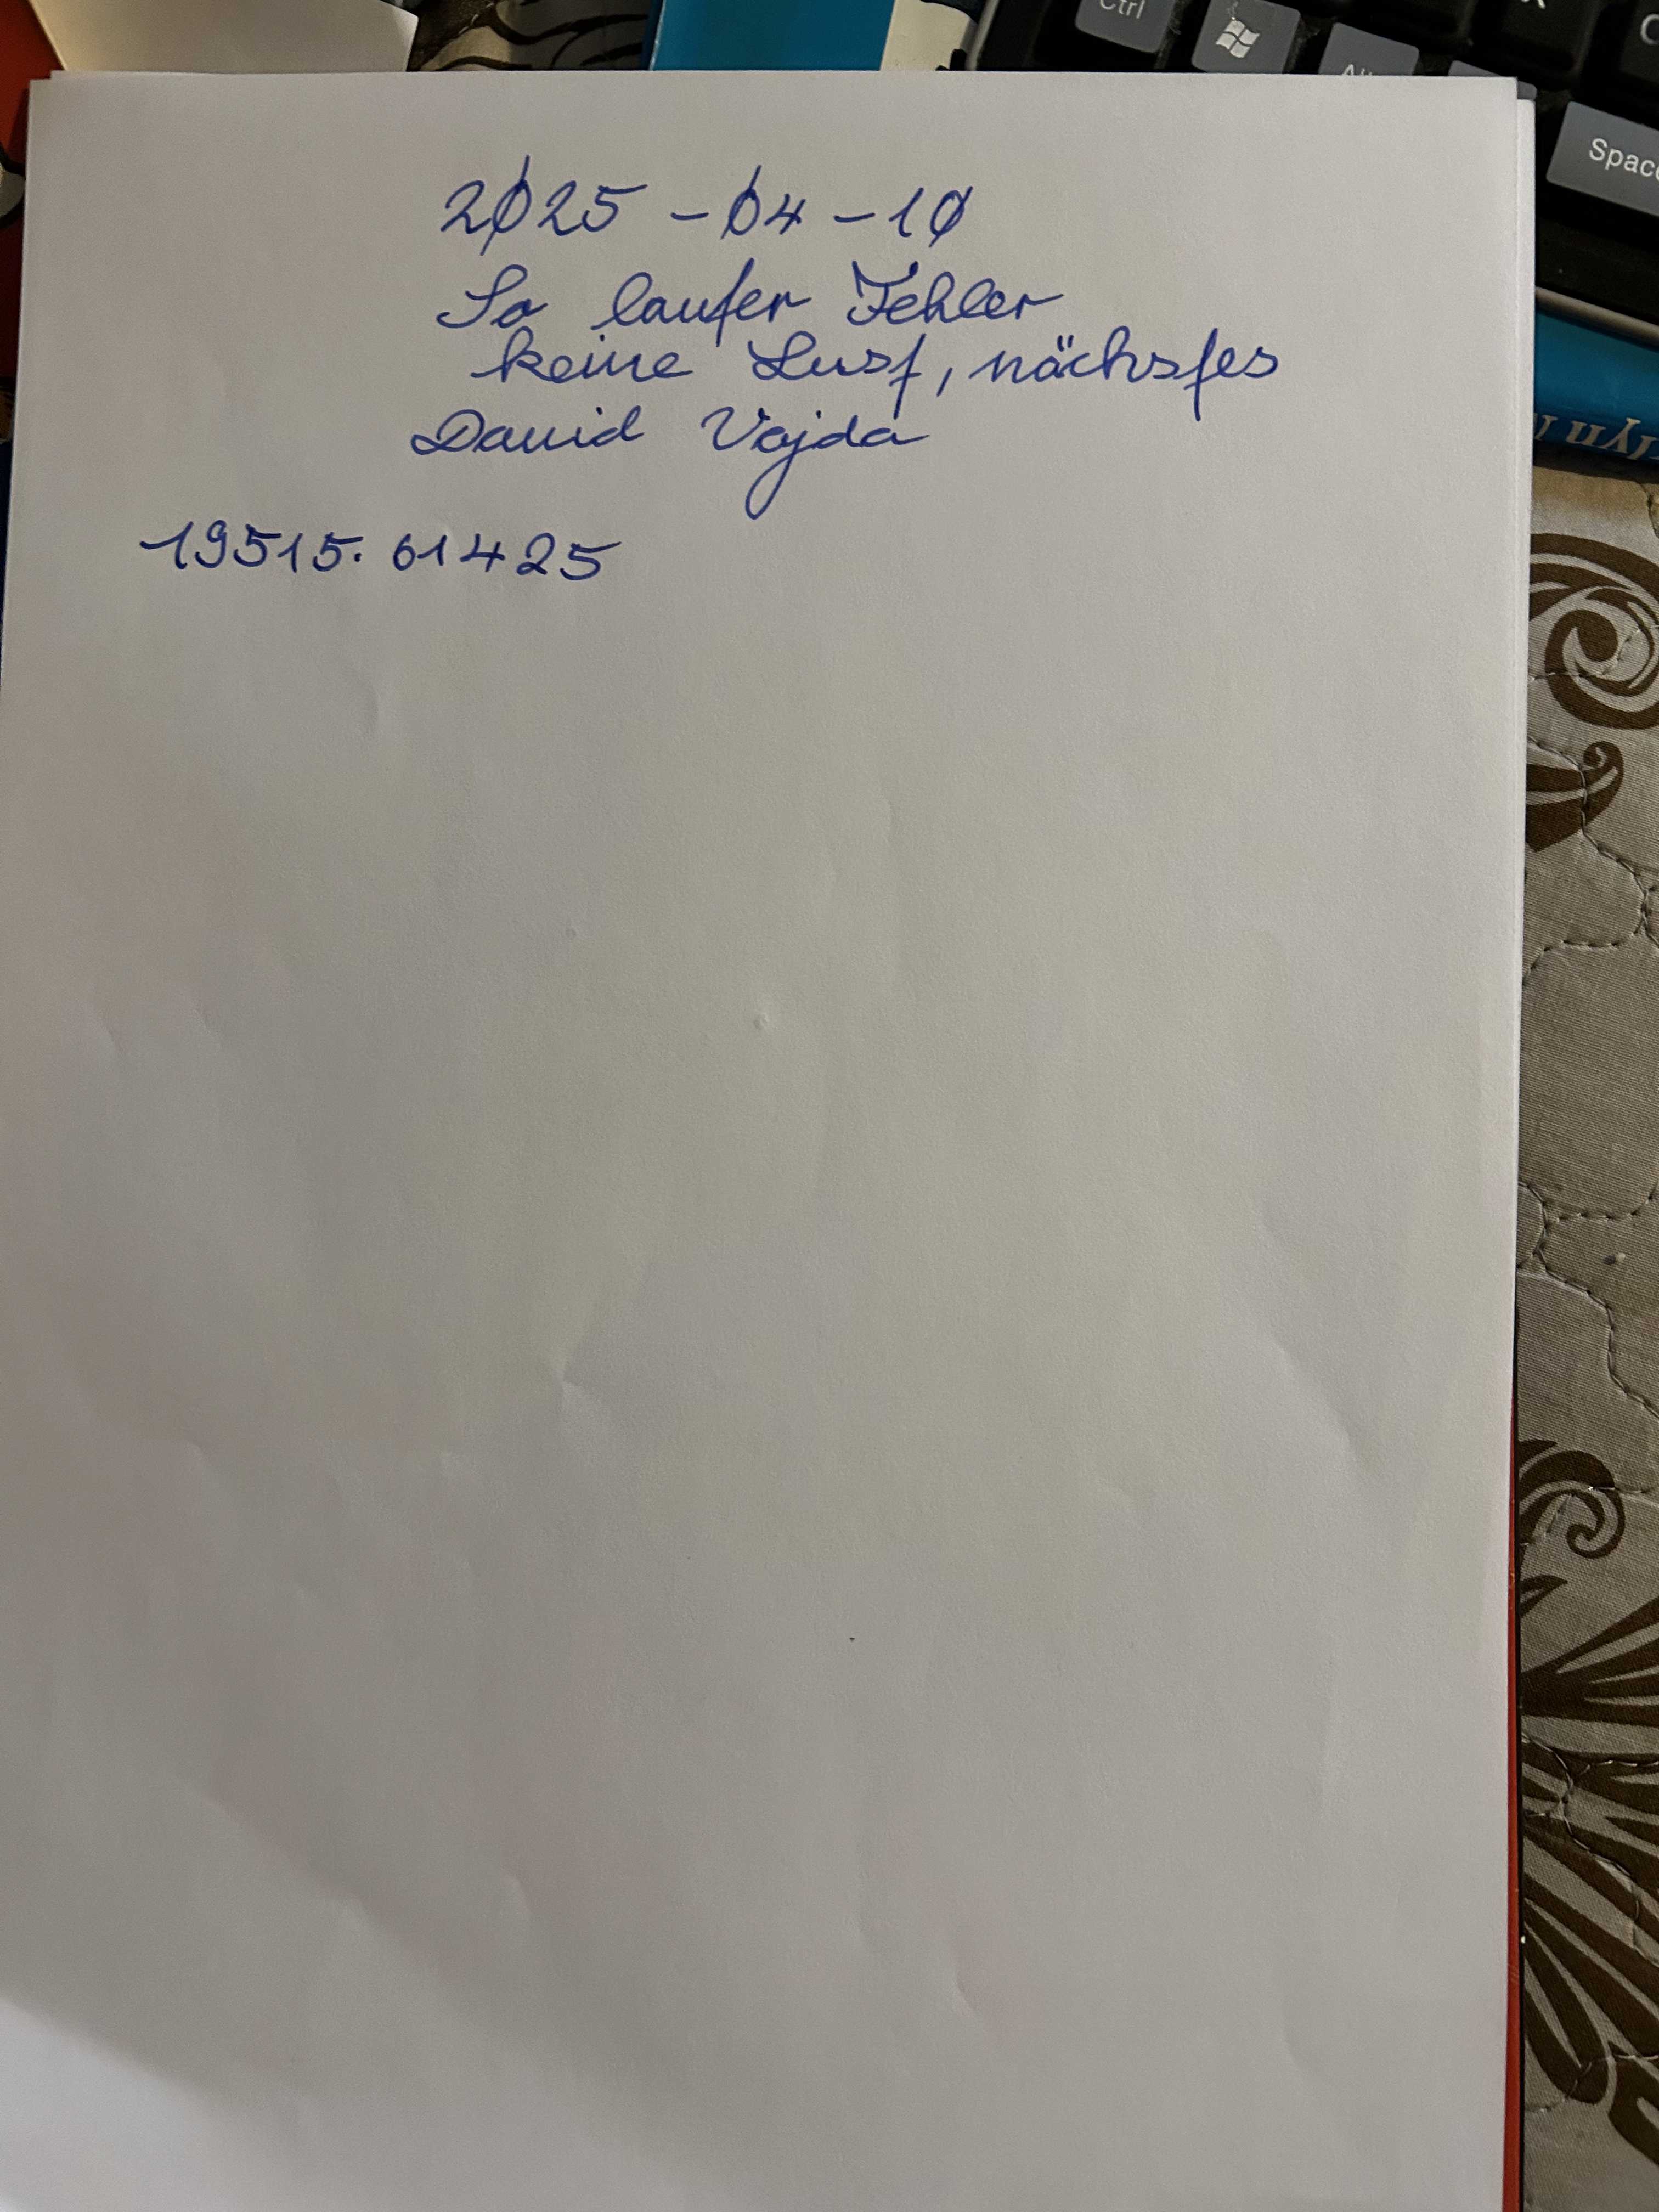 Ctrl
Alt
Space
2025 - 04 - 10
So lauter Fehler
keine Lust, nächstes
David Vajda
19515. 61425